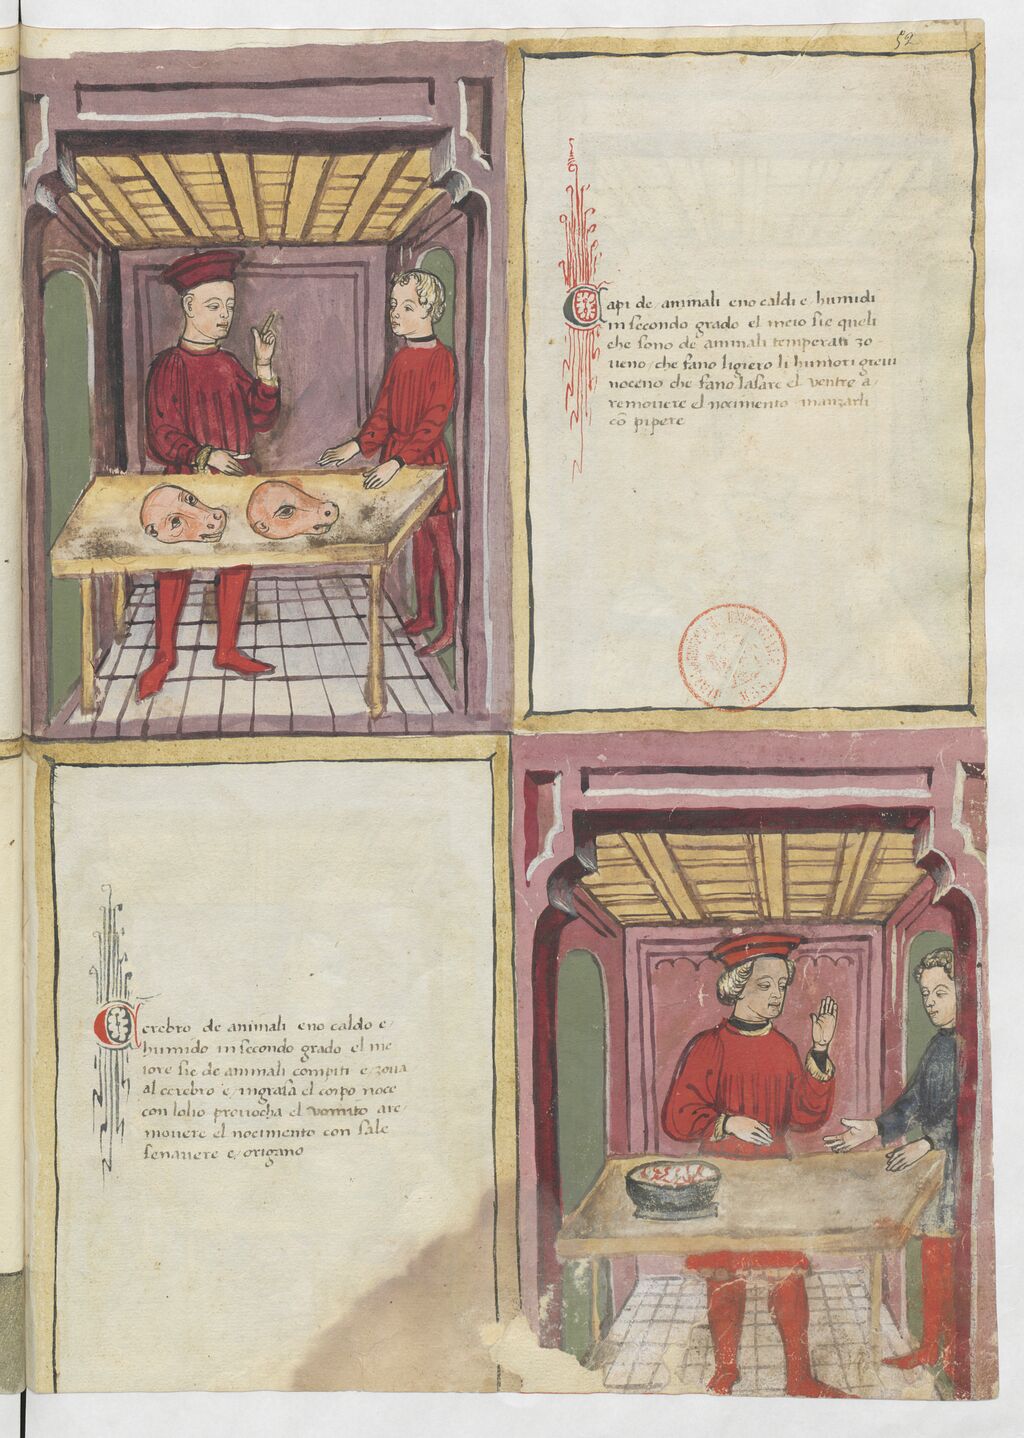 52
Capi de animali eno caldi e humidi
in secondo grado el meio sie queli
che sono de animali temperati zo
ueno che fano ligiero li humori greui
noceno che fano lasare el ventre a
remouere el nocimento manzarli
cō pipere
Cerebro de animali eno caldo e
humido in secondo grado el me
iore sie de animali compiti e zoua
al cerebro e ingrasa el corpo noce
con lolio prouocha el vomito are
mouere el nocimento con sale
senauere e origano